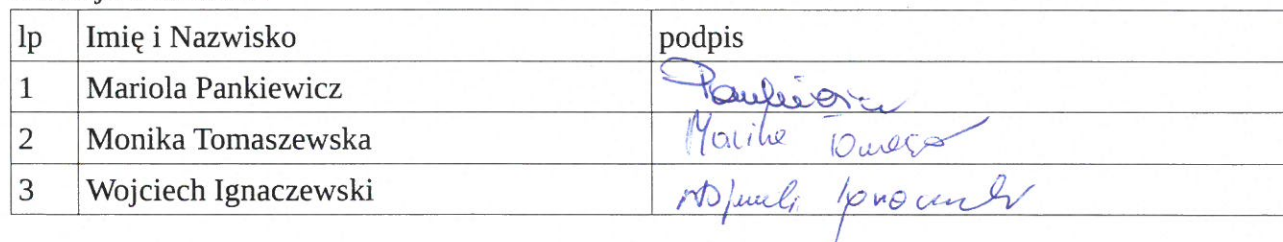 lp Imię i Nazwisko podpis
1 Mariola Pankiewicz Pankiewicz
2 Monika Tomaszewska Monika
3 Wojciech Ignaczewski